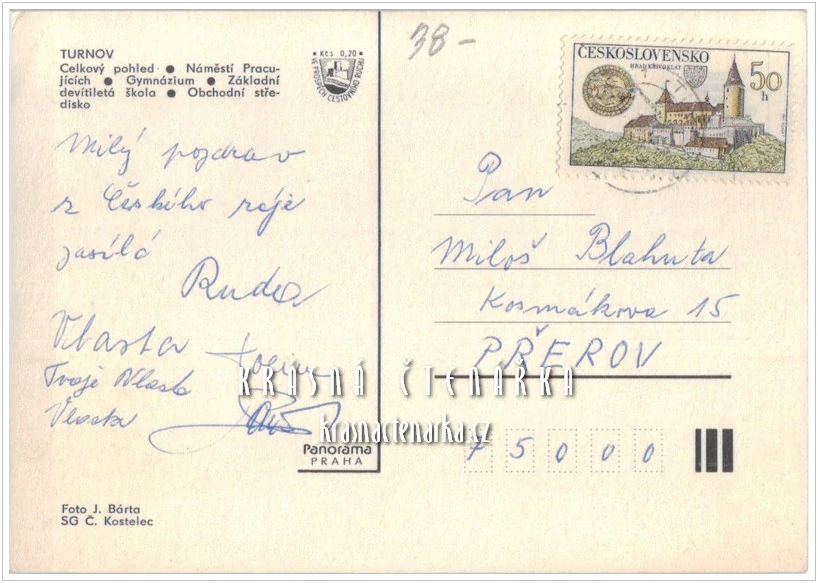 TURNOV
Celkový pohled ● Náměstí Pracu-
jících ● Gymnázium ● Základní
devítiletá škola ● Obchodní stře-
disko
Kčs 0,20
VE PROSPĚCH CESTOVNÍHO RUCHU
38-
ČESKOSLOVENSKO
HRAD KŘIVOKLÁT
50
h
Milý pozdrav
z Českého ráje
zasílá
Ruda
Vlasta
Tvoje Vlasta
Vlasta
Pan
Miloš Blahuta
Kosmákova 15
PŘEROV
75000
KRÁSNÁ ČTENÁŘKA
krasnactenarka.cz
Panorama
PRAHA
Foto J. Bárta
SG Č. Kostelec